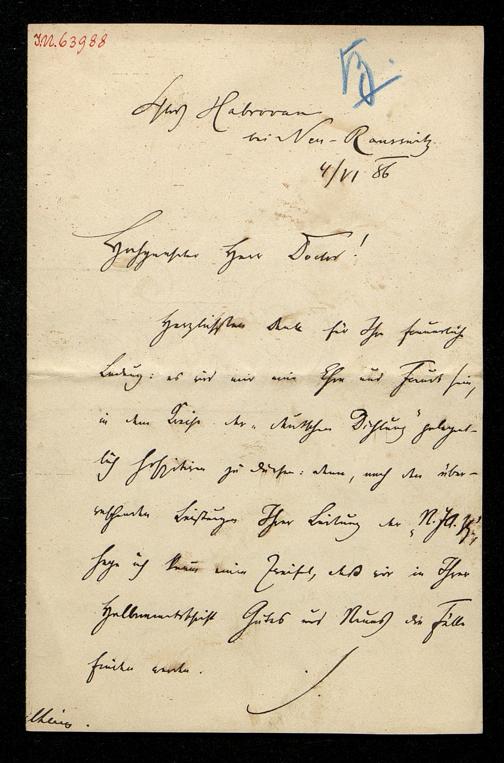 I.N. 63988
Schloß Habrovan
bei Neu-Raussnitz
4/VI 86
Hochgeehrter Herr Doctor!
Herzlichsten Dank für Ihre freundliche
Ladung: es wird mir eine Ehre und Freude sein,
in dem Kreise der „deutschen Dichtung" gelegent-
lich hospitiren zu dürfen: denn, nach den über-
raschenden Leistungen Ihrer Leitung der „N. Ill. Z."
hege ich kaum einen Zweifel, daß wir in Ihrer
Halbmonatschrift Gutes und Neues die Fülle
finden werden.